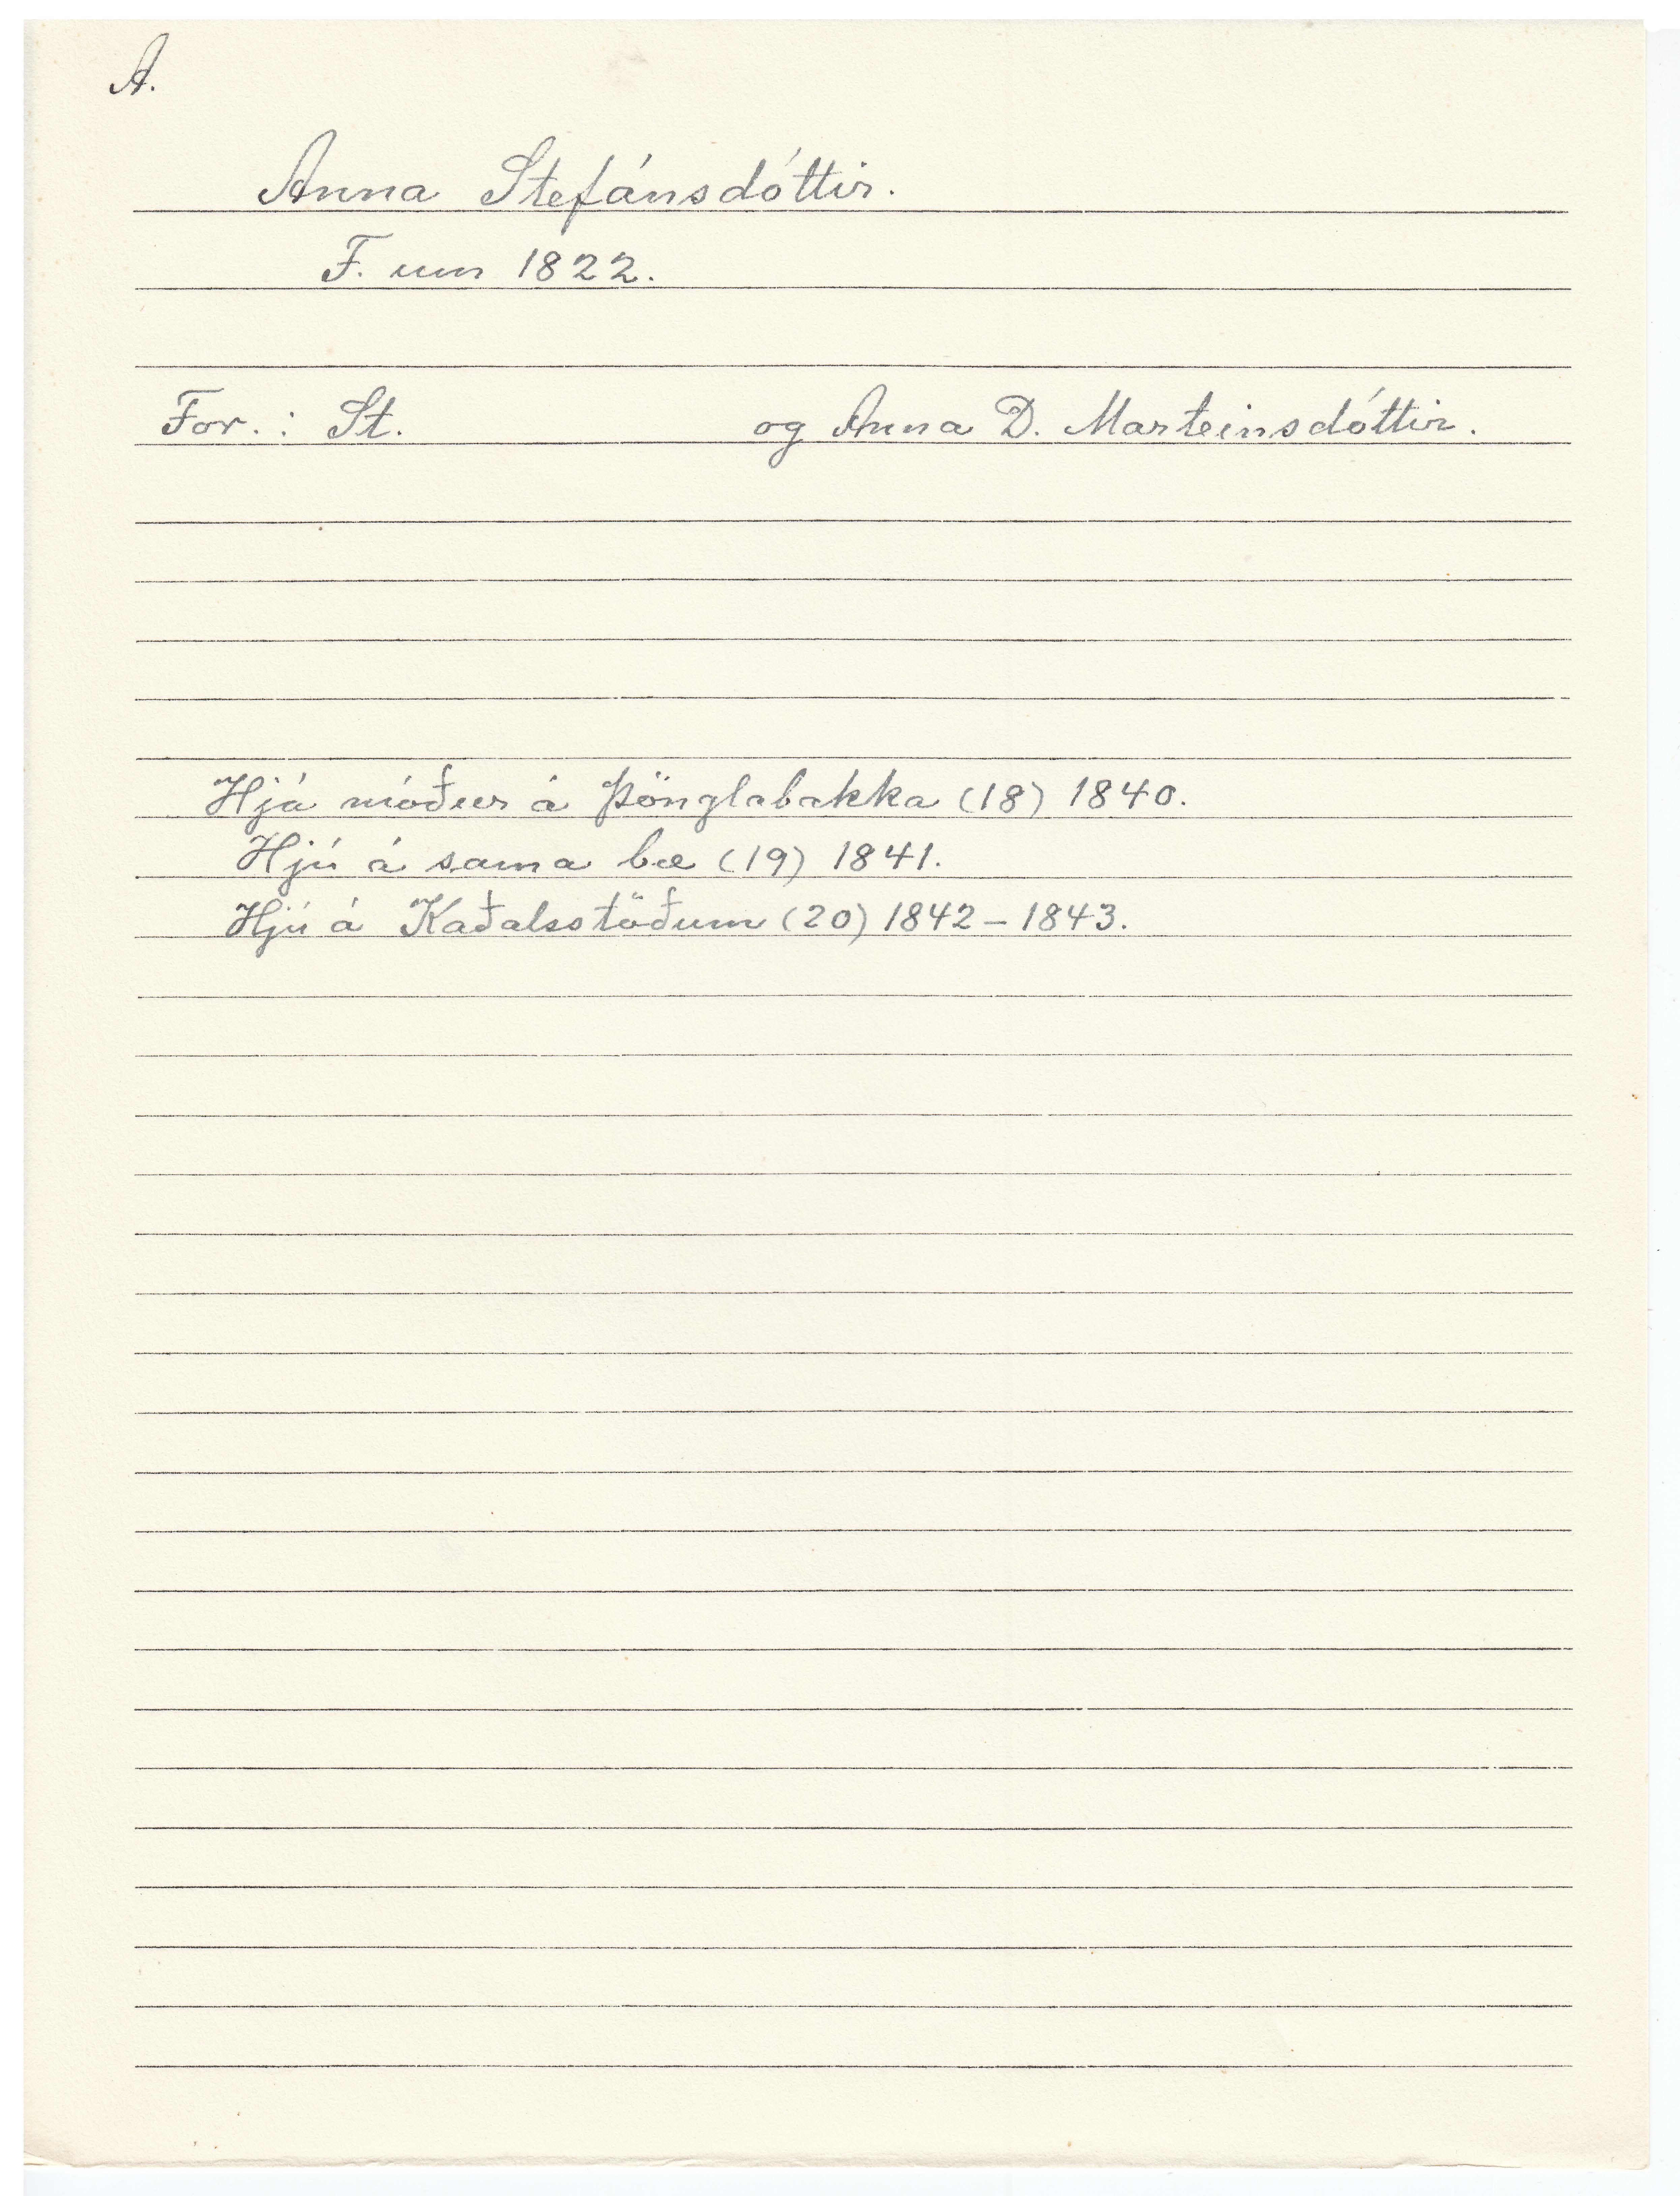 A.
Anna Stefánsdóttir.
F. um 1822.
For.: St. og Anna D. Marteinsdóttir.
Hjá móður á Þönglabakka (18) 1840.
Hjú á sama bæ (19) 1841.
Hjú á Kaðalsstöðum (20) 1842 - 1843.